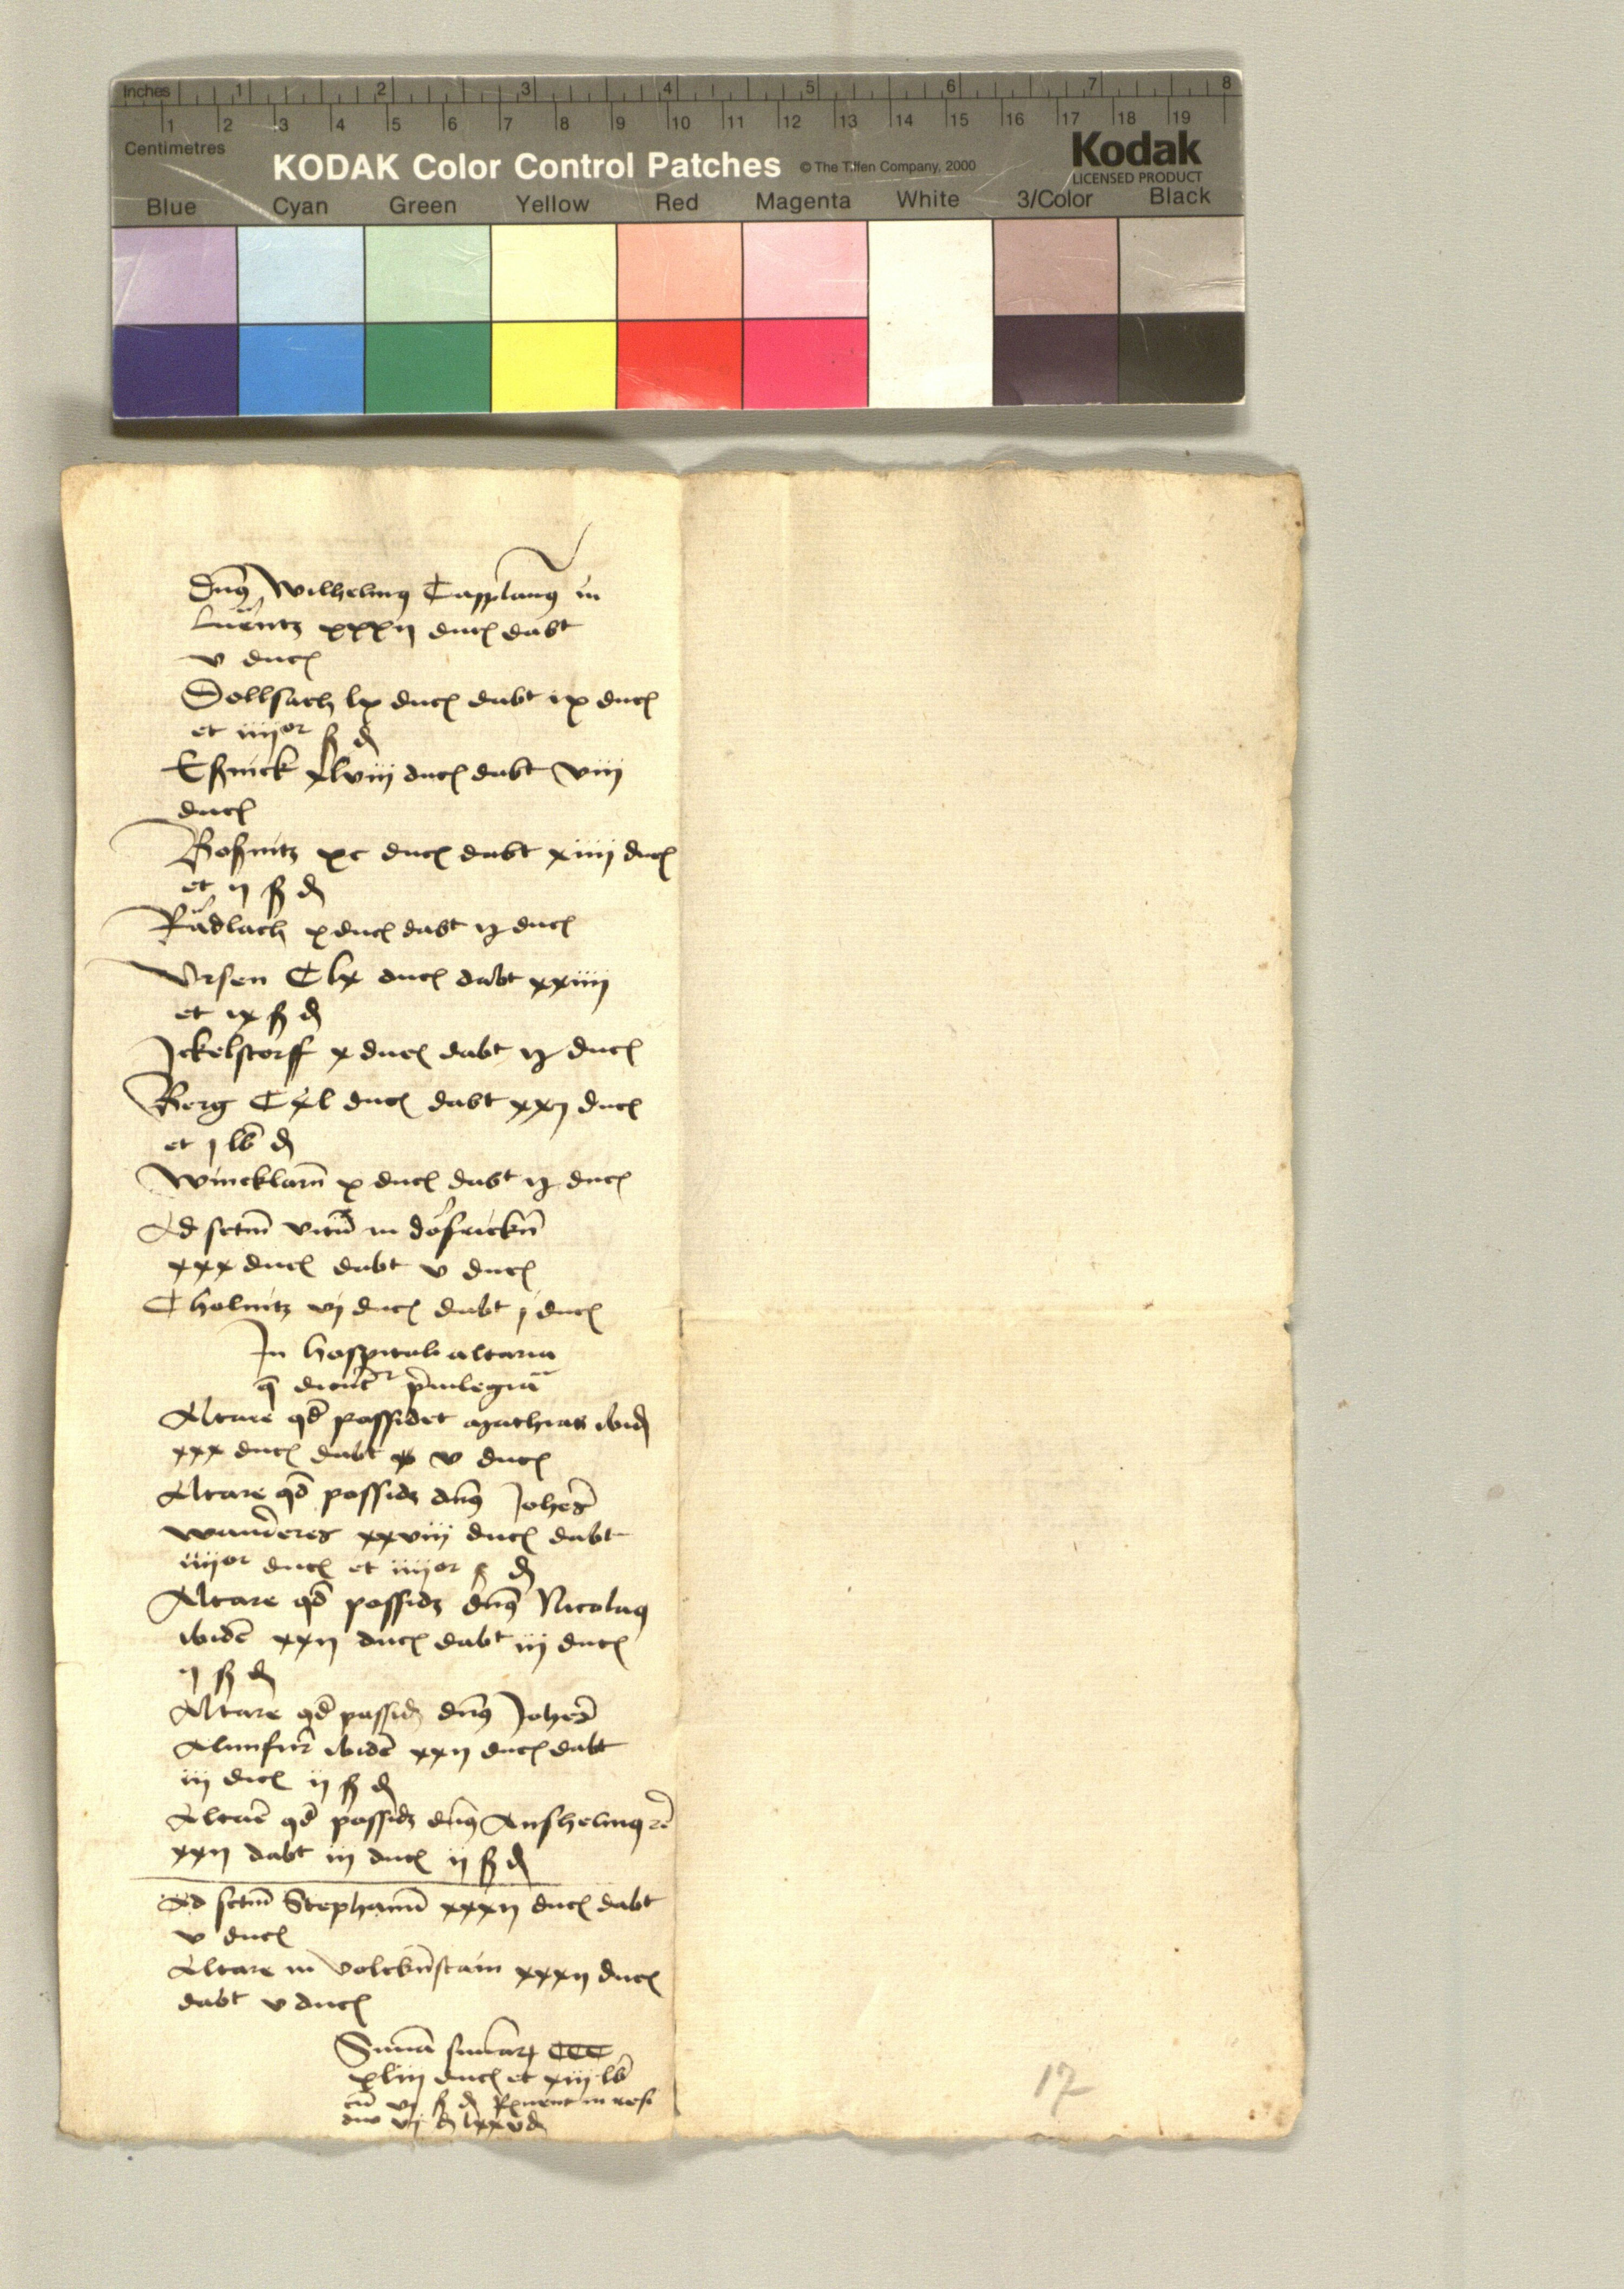 Inches 1 2 3 4 5 6 7 8
1 2 3 4 5 6 7 8 9 10 11 12 13 14 15 16 17 18 19
Centimetres
KODAK Color Control Patches © The Tiffen Company, 2000 Kodak
LICENSED PRODUCT
Blue Cyan Green Yellow Red Magenta White 3/Color Black
Dns Wilhelmus Capplanus in
Luentz xxxij duc dabt
v duc
Dollsach lx duc dabt ix duc
et iiijor ß d
xlviij duc dabt viij
duc
xc duc dabt xiiij duc
et ij ß d
Radlach x duc dabt ij duc
Vrsen Clx duc dabt xxiiij
et ix ß d
Jckelstorff x duc dabt ij duc
Berg Cxl duc dabt xxij duc
et j lb d
Wincklarn x duc dabt ij duc
Ad sctm vitu in
xxx duc dabt v duc
Cholnitz vj duc dabt j duc
In hospitali altaria
q dicut priuilegia
Altare qd possidet mathias ibid
xxx duc dabt v duc
Altare qd possidz dns Johes
xxviij duc dabt
iiijor duc et iiijor ß d
Altare qd possidz dns Nicolaus
ibide xxij duc dabt iij duc
ij ß d
Altare qd possidz dns Johes
ibide xxij duc dabt
iij duc ij ß d
Altare qd possidz dns Anshelmus
xxij dabt iij duc ij ß d
Ad sctm Stephanu xxxij duc dabt
v duc
Altare in Volcknstain xxxij duc
dabt v duc
Suma sumar CCC
xliij duc et xiij lb
cu vj ß d in resi
duo vj ß lxxv d
17